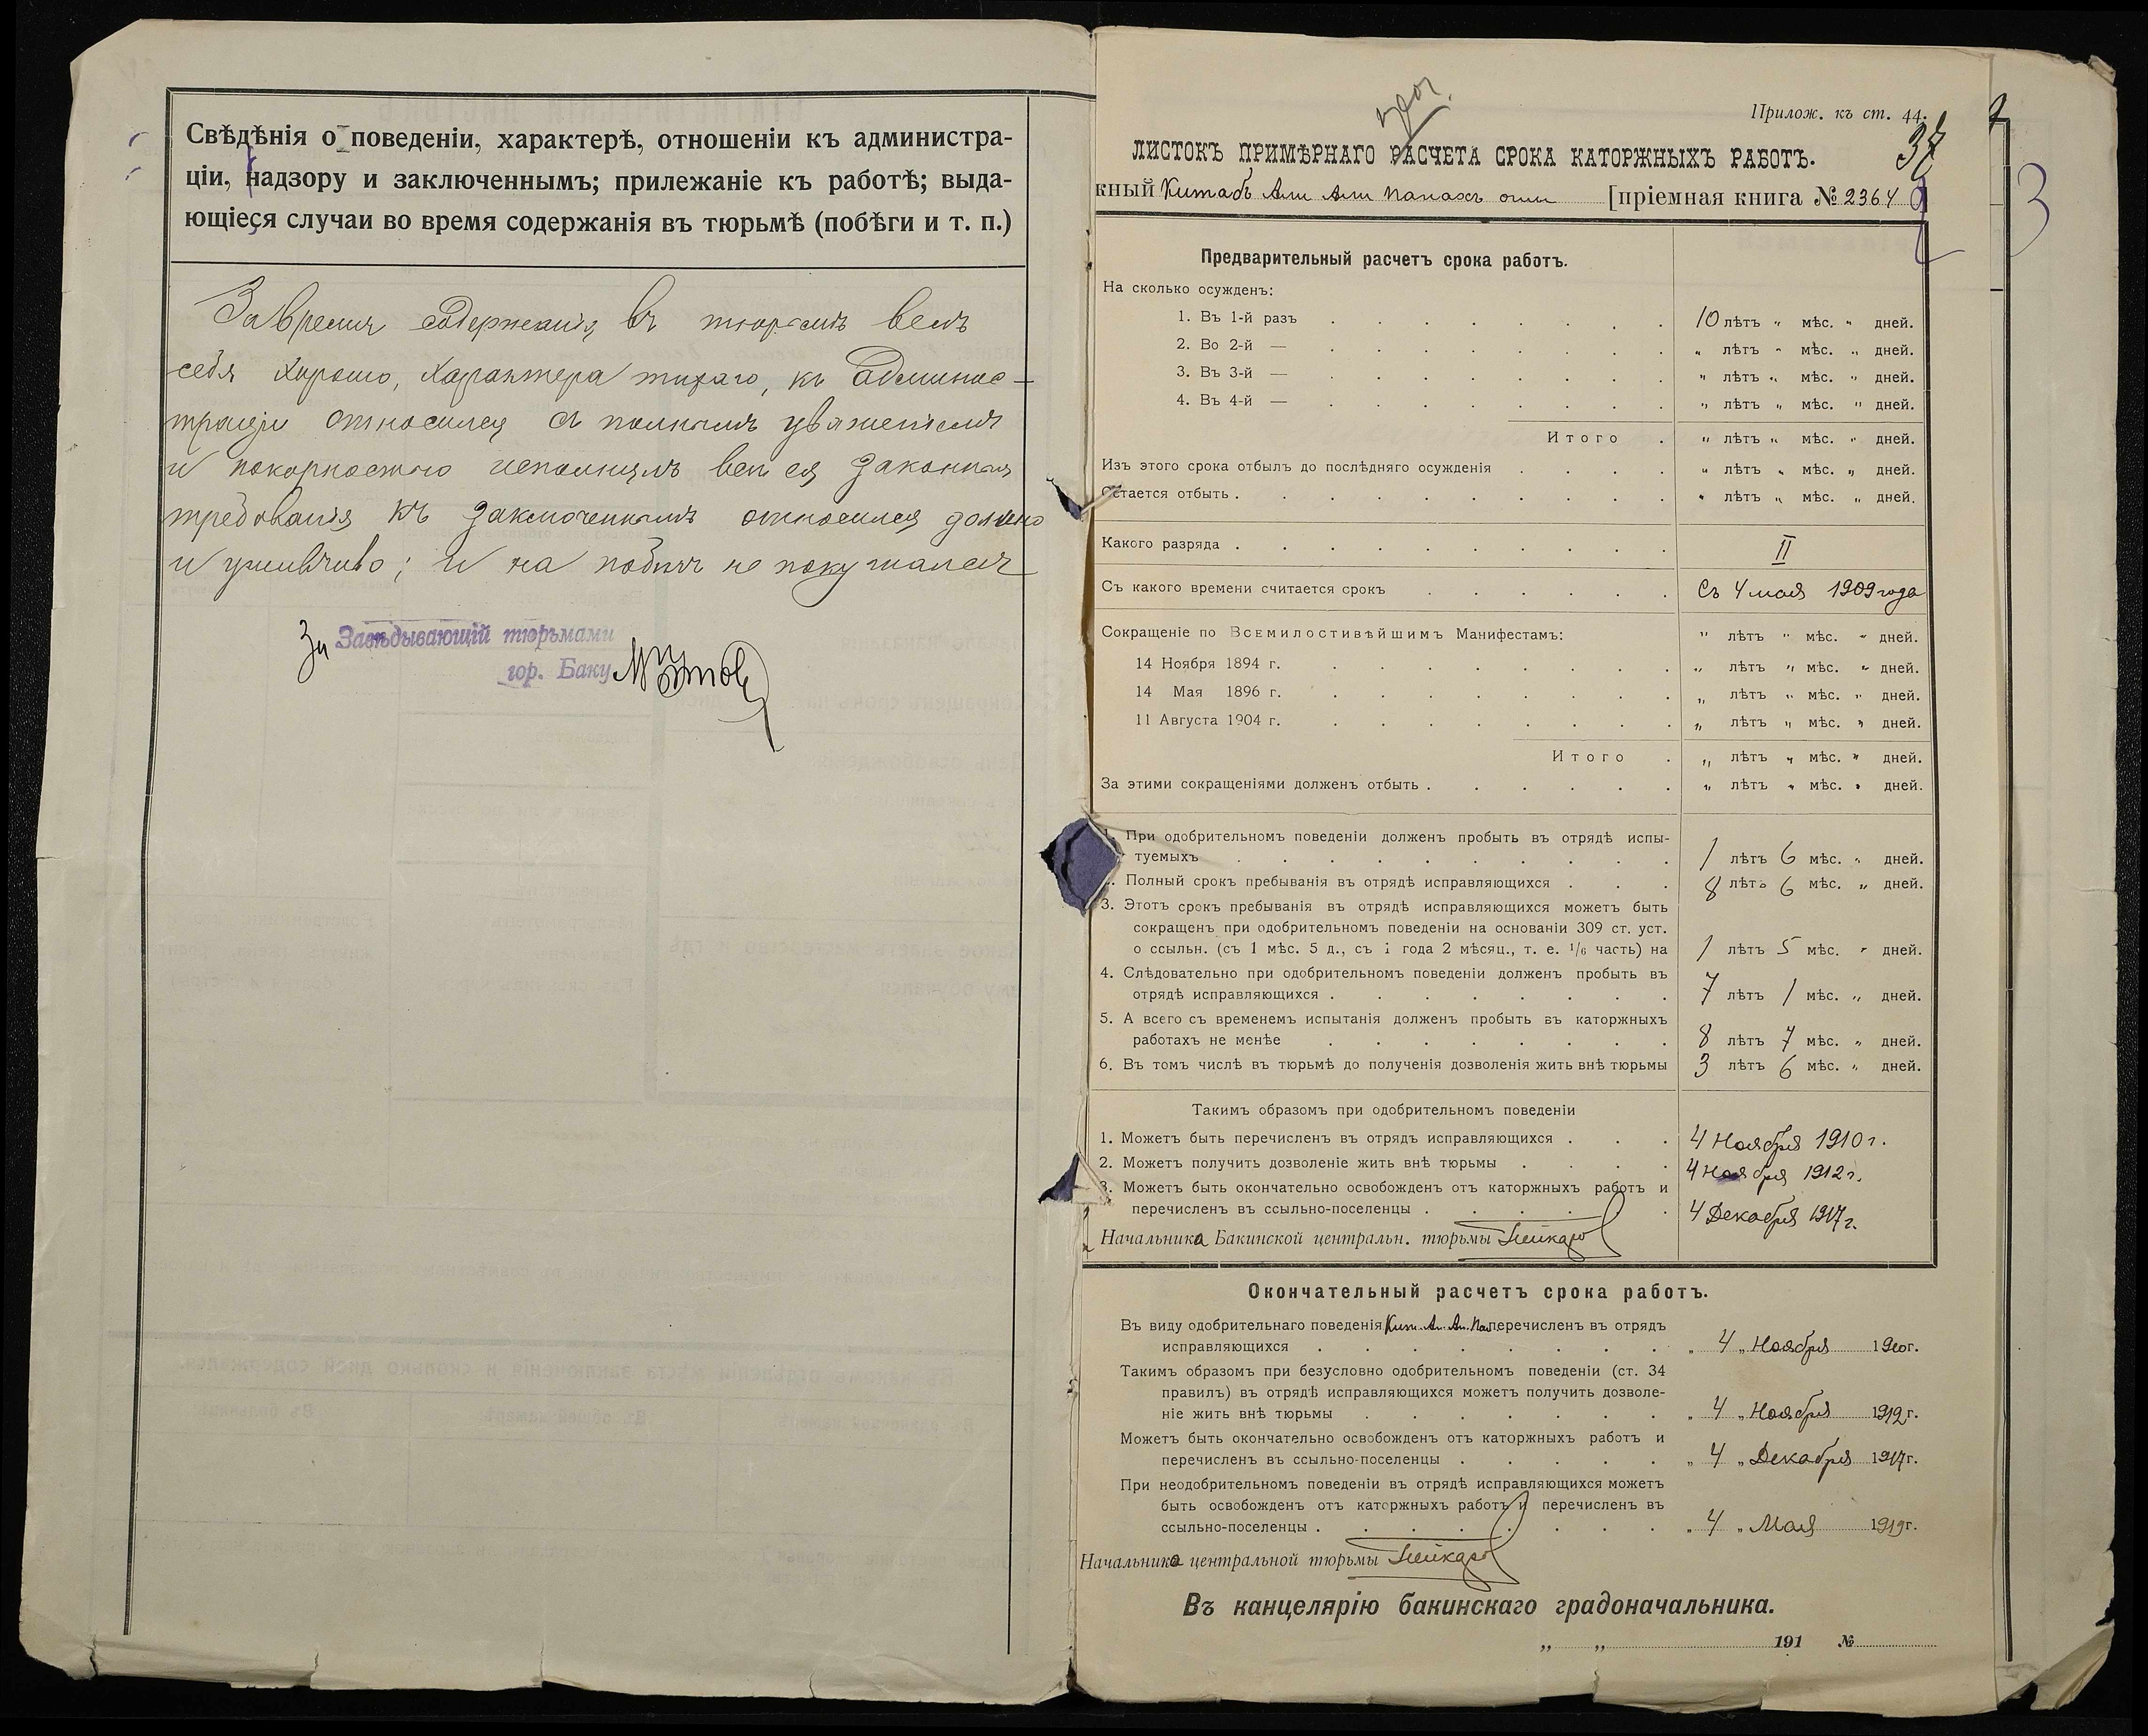 Свѣдѣнія о поведеніи, характерѣ, отношеніи къ администра-
ціи, надзору и заключеннымъ; прилежаніе къ работѣ; выда-
ющіеся случаи во время содержанія въ тюрьмѣ (побѣги и т. п.)
За время содержанія въ тюрьмѣ велъ
себя хорошо, характера тихаго, къ админис-
траціи относился съ полнымъ уваженіемъ
и покорностью исполнялъ всѣ ея законныя
требованія къ заключеннымъ относился
и уживчиво; и на побѣгъ не покушался
За Завѣдывающій тюрьмами
гор. Баку
Прилож. къ ст. 44.
37
3
ЛИСТОКЪ ПРИМѢРНАГО РАСЧЕТА СРОКА КАТОРЖНЫХЪ РАБОТЪ.
жный Китабъ Али Али Панахъ оглы [пріемная книга № 2364
Предварительный расчетъ срока работъ.
На сколько осужденъ:
1. Въ 1-й разъ 10 лѣтъ „ мѣс. „ дней.
2. Во 2-й — „ лѣтъ „ мѣс. „ дней.
3. Въ 3-й — „ лѣтъ „ мѣс. „ дней.
4. Въ 4-й — „ лѣтъ „ мѣс. „ дней.
Итого „ лѣтъ „ мѣс. „ дней.
Изъ этого срока отбылъ до послѣдняго осужденія „ лѣтъ „ мѣс. „ дней.
Остается отбыть „ лѣтъ „ мѣс. „ дней.
Какого разряда II
Съ какого времени считается срокъ Съ 4 мая 1909 года
Сокращеніе по Всемилостивѣйшимъ Манифестамъ: „ лѣтъ „ мѣс. „ дней.
14 Ноября 1894 г. „ лѣтъ „ мѣс. „ дней.
14 Мая 1896 г. „ лѣтъ „ мѣс. „ дней.
11 Августа 1904 г. „ лѣтъ „ мѣс. „ дней.
Итого „ лѣтъ „ мѣс. „ дней.
За этими сокращеніями долженъ отбыть „ лѣтъ „ мѣс. „ дней.
1. При одобрительномъ поведеніи долженъ пробыть въ отрядѣ испы-
туемыхъ 1 лѣтъ 6 мѣс. „ дней.
2. Полный срокъ пребыванія въ отрядѣ исправляющихся 8 лѣтъ 6 мѣс. „ дней.
3. Этотъ срокъ пребыванія въ отрядѣ исправляющихся можетъ быть
сокращенъ при одобрительномъ поведеніи на основаніи 309 ст. уст.
о ссыльн. (съ 1 мѣс. 5 д., съ 1 года 2 мѣсяц., т. е. 1/6 часть) на 1 лѣтъ 5 мѣс. „ дней.
4. Слѣдовательно при одобрительномъ поведеніи долженъ пробыть въ
отрядѣ исправляющихся 7 лѣтъ 1 мѣс. „ дней.
5. А всего съ временемъ испытанія долженъ пробыть въ каторжныхъ
работахъ не менѣе 8 лѣтъ 7 мѣс. „ дней.
6. Въ томъ числѣ въ тюрьмѣ до полученія дозволенія жить внѣ тюрьмы 3 лѣтъ 6 мѣс. „ дней.
Такимъ образомъ при одобрительномъ поведеніи
1. Можетъ быть перечисленъ въ отрядъ исправляющихся 4 Ноября 1910 г.
2. Можетъ получить дозволеніе жить внѣ тюрьмы 4 Ноября 1912 г.
3. Можетъ быть окончательно освобожденъ отъ каторжныхъ работъ и
перечисленъ въ ссыльно-поселенцы 4 Декабря 1917 г.
Начальника Бакинской центральн. тюрьмы
Окончательный расчетъ срока работъ.
Въ виду одобрительнаго поведенія Кит. Ал. Ал. Пан. перечисленъ въ отрядъ
исправляющихся „ 4 „ Ноября 1910 г.
Такимъ образомъ при безусловно одобрительномъ поведеніи (ст. 34
правилъ) въ отрядѣ исправляющихся можетъ получить дозволе-
ніе жить внѣ тюрьмы „ 4 „ Ноября 1912 г.
Можетъ быть окончательно освобожденъ отъ каторжныхъ работъ и
перечисленъ въ ссыльно-поселенцы „ 4 „ Декабря 1917 г.
При неодобрительномъ поведеніи въ отрядѣ исправляющихся можетъ
быть освобожденъ отъ каторжныхъ работъ и перечисленъ въ
ссыльно-поселенцы „ 4 „ Мая 1919 г.
Начальника центральной тюрьмы
Въ канцелярію бакинскаго градоначальника.
„ „ 191 №